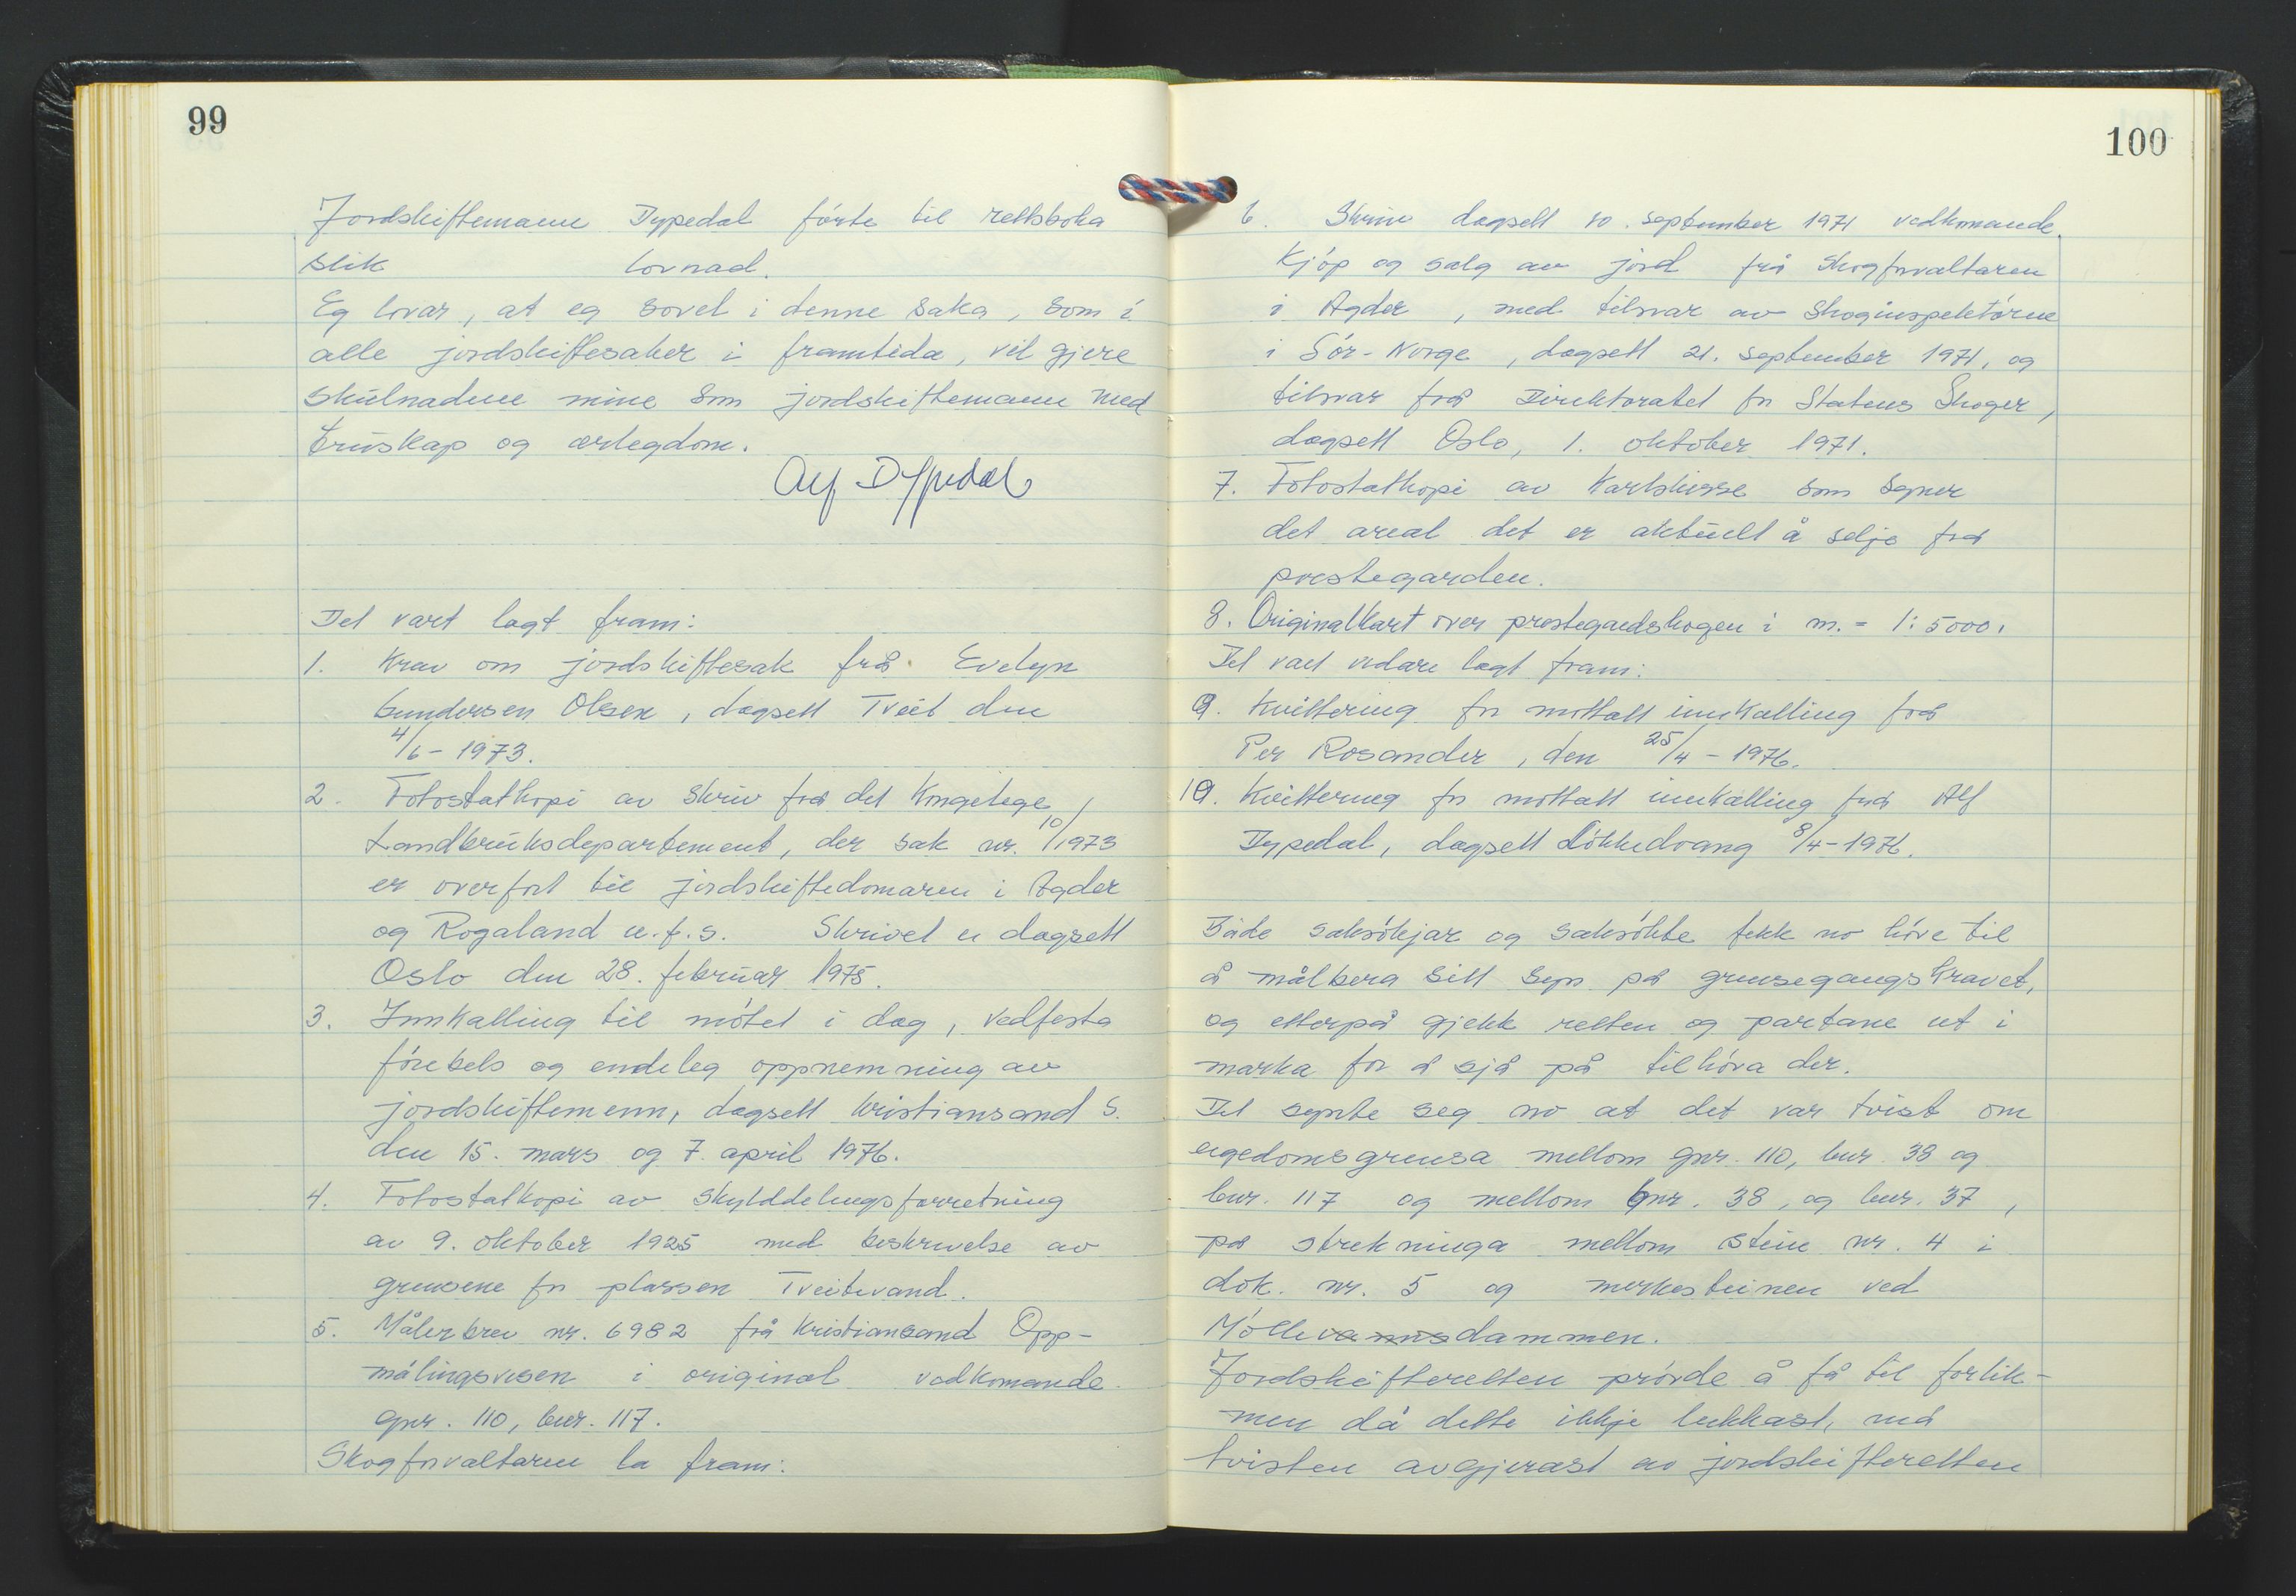 99
Jordskiftemann Dypedal førte til rettsboka
slik lovnad.
Eg lovar, at eg sovel i denne saka, som i
alle jordskiftesaker i framtida, vil gjere
skulnadene mine som jordskiftemann med
truskap og ærlegdom.
Alf Dypedal
Det vart lagt fram:
1. Krav om jordskiftesak frå Evelyn
Gundersen Olsen, dagsett Tveit den
4/6-1973.
2. Fotostatkopi av skriv frå det Kongelege
Landbruksdepartement, der sak nr. 10/1973
er overført til jordskiftedomaren i Agder
og Rogaland u.f.s. Skrivet er dagsett
Oslo den 28. februar 1975.
3. Innkalling til møtet i dag, vedfesta
førebels og endeleg oppnemning av
jordskiftemenn, dagsett Kristiansand S.
den 15. mars og 7. april 1976.
4. Fotostatkopi av skylddelingsforretning
av 9. oktober 1925 med beskrivelse av
grensene for plassen Tveitevand.
5. Målerbrev nr. 6982 frå Kristiansand Opp-
målingsvesen i original vedkomande
gnr. 110, bnr. 117.
Skogforvaltaren la fram:
100
6. Skriv dagsett 10. september 1971 vedkomande
Kjøp og salg av jord frå Skogforvaltaren
i Agder, med tilsvar av Skoginspektøren
i Sør-Norge, dagsett 21. september 1971, og
tilsvar frå Direktoratet for Statens Skoger,
dagsett Oslo, 1. oktober 1971.
7. Fotostatkopi av Kartskisse som syner
det areal det er aktuelt å selje frå
prestegarden.
8. Originalkart over prestegardskogen i m. = 1:5000.
Det vart vidare lagt fram:
9. Kvittering for mottatt innkalling frå
Per Rosander, den 25/4-1976.
10. Kvittering for mottatt innkalling frå Alf
Dypedal, dagsett Løkkedrang 8/4-1976.
Både saksøkjar og saksøkte fekk no høve til
å målbera sitt syn på grensegangskravet,
og etterpå gjekk retten og partane ut i
marka for å sjå på tilhøva der.
Det synte seg no at det var tvist om
eigedomsgrensa mellom gnr. 110, bnr. 38 og
bnr. 117 og mellom bnr. 38, og bnr. 37,
på strekninga mellom stein nr. 4 i
dok. nr. 5 og merkesteinen ved
Møllevannsdammen.
Jordskifteretten prøvde å få til forlik -
men då dette ikkje lukkast, må
tvisten avgjerast av jordskifteretten